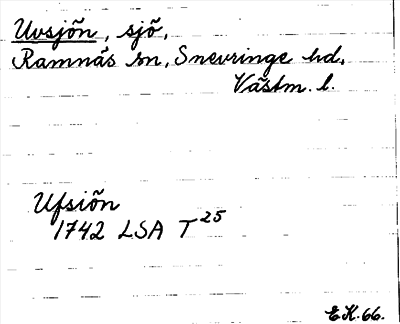 Uvsjön, sjö,
Ramnäs sn, Snevringe hd,
Västm. l.
Ufsiön
1742 LSA T25
EK.66.